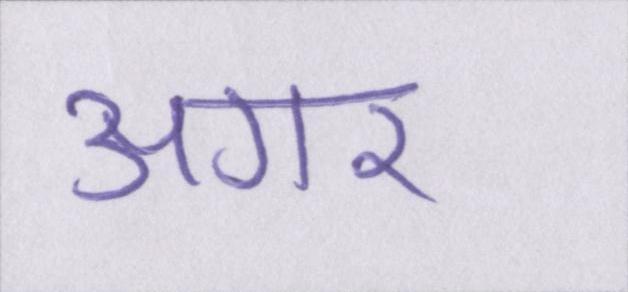 अगर